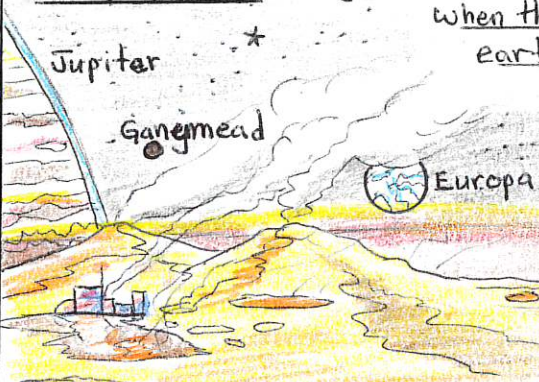 when th
eart
Jupiter
Ganymead
Europa